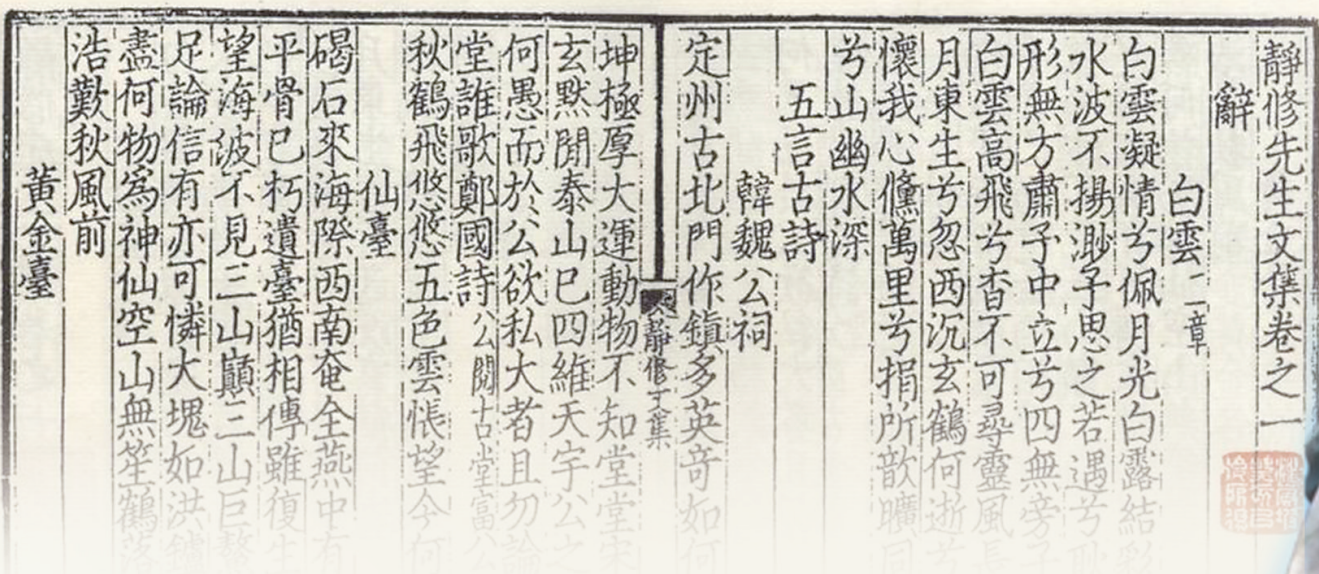 靜修先生文集卷之一
辭
白雲一章
白雲凝情兮佩月光白露結彩
水波不揚渺予思之若遇兮耿
形無方肅予中立兮四無旁予
白雲高飛兮杳不可尋靈風長
月東生兮忽西沉玄鶴何逝兮
懷我心儵萬里兮捐所歆曠同
兮山幽水深
五言古詩
韓魏公祠
定州古北門作鎮多英奇如何
靜修文集
坤極厚大運動物不知堂堂宋
玄默閒泰山已四維天宇公之
何愚而於公欲私大者且勿論
堂誰歌鄭國詩公閱古堂富公
秋鶴飛悠悠五色雲悵望今何
仙臺
碣石來海際西南奄全燕中有
平骨已朽遺臺猶相傳雖復生
望海波不見三山巔三山巨鰲
足論信有亦可憐大塊如洪鑪
盡何物為神仙空山無笙鶴落
浩歎秋風前
黃金臺